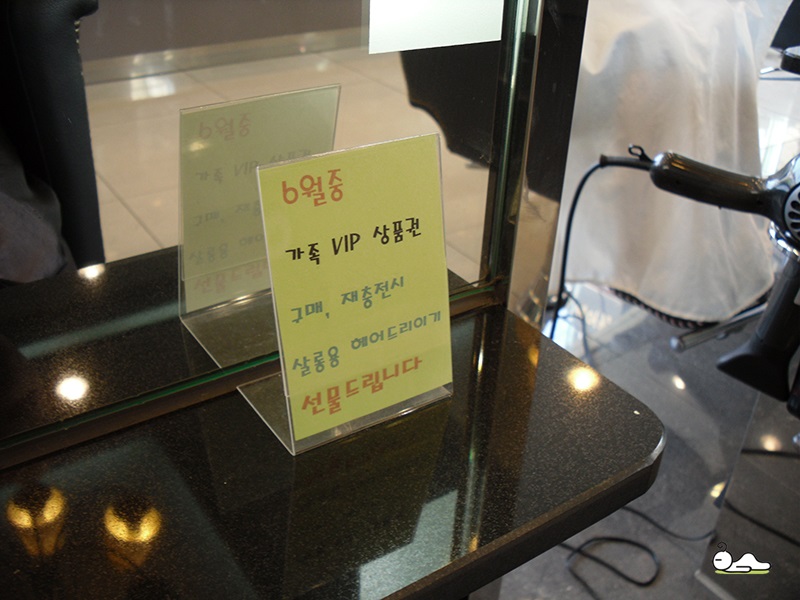 6월중
가족 VIP 상품권
구매, 재충전시
살롱용 헤어드라이기
선물드립니다